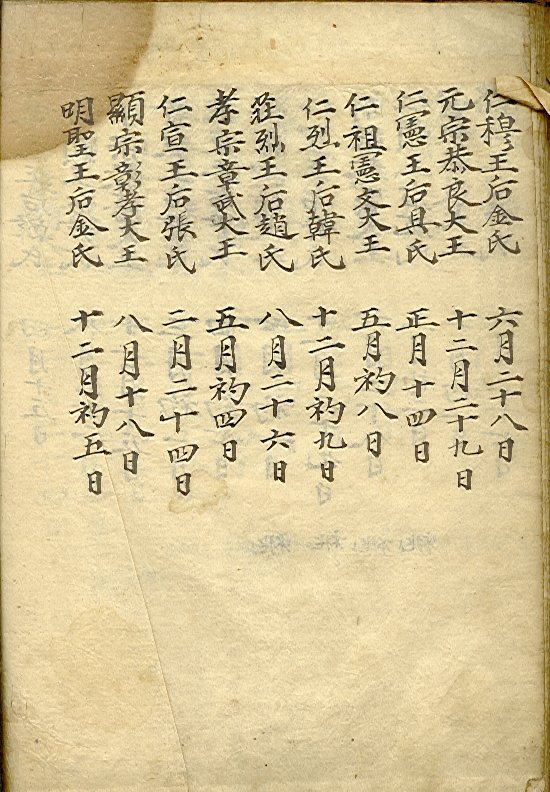 仁穆王后金氏 六月二十八日
元宗恭良大王 十二月二十九日
仁憲王后具氏 正月十四日
仁祖憲文大王 五月初八日
仁烈王后韓氏 十二月初九日
莊烈王后趙氏 八月二十六日
孝宗章武大王 五月初四日
仁宣王后張氏 二月二十四日
顯宗彰孝大王 八月十八日
明聖王后金氏 十二月初五日